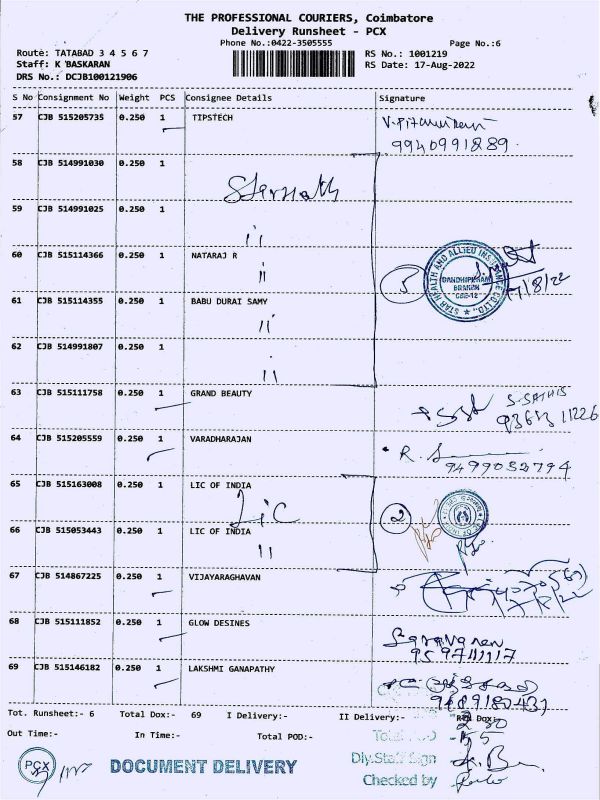 THE PROFESSIONAL COURIERS, Coimbatore
Delivery Runsheet - PCX
Phone No.:0422-3505555 Page No.:6
Route: TATABAD 3 4 5 6 7 RS No.: 1001219
Staff: K BASKARAN RS Date: 17-Aug-2022
DRS No.: DCJB100121906
S No Consignment No Weight PCS Consignee Details Signature
57 CJB 515205735 0.250 1 TIPSTECH
9940991889
58 CJB 514991030 0.250 1
59 CJB 514991025 0.250 1
60 CJB 515114366 0.250 1 NATARAJ R
STAR HEALTH AND ALLIED INSURANCE CO LTD. GANDHIPURAM BRANCH CBE-12
61 CJB 515114355 0.250 1 BABU DURAI SAMY
62 CJB 514991807 0.250 1
63 CJB 515111758 0.250 1 GRAND BEAUTY S-SATHIS
64 CJB 515205559 0.250 1 VARADHARAJAN R.
9499052794
65 CJB 515163008 0.250 1 LIC OF INDIA
LiC 2
66 CJB 515053443 0.250 1 LIC OF INDIA
67 CJB 514867225 0.250 1 VIJAYARAGHAVAN
68 CJB 515111852 0.250 1 GLOW DESINES
Saravanan
69 CJB 515146182 0.250 1 LAKSHMI GANAPATHY
Tot. Runsheet:- 6 Total Dox:- 69 I Delivery:- II Delivery:-
Out Time:- In Time:- Total POD:-
PCX DOCUMENT DELIVERY Dly.Staff Sign
Checked by